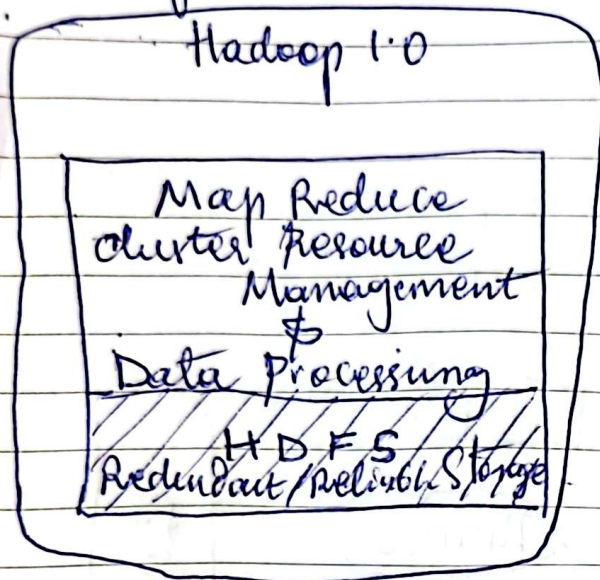 Hadoop 1.0
Map Reduce
Cluster Resource
Management
&
Data Processing
HDFS
Redundant/Reliable Storage